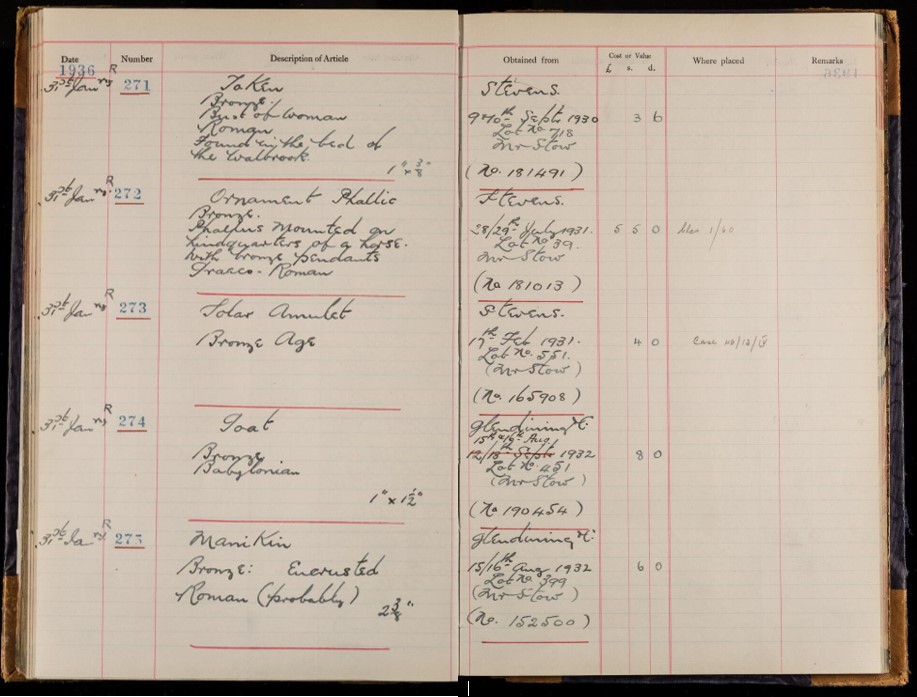 Date
Number
Description of Article
Obtained from
Cost or Value
£ s. d.
Where placed
Remarks
1936
31st Janry R
271
Token
Bronze.
Bust of woman
Roman
Found in the bed of
the Walbrook
Stevens.
9th/10th Septr 1930
Lot No 718
Mr Stow
(No. 181491)
3 6
31st Janry R
272
Ornament Phallic
Bronze.
Phallus mounted on
hindquarters of a horse.
With bronze pendants
Graeco-Roman
Stevens.
28/29th July 1931.
Lot No 39.
Mr Stow
(No 181013)
5 5 0
31st Janry R
273
Solar Amulet
Bronze Age
Stevens.
17th Feb 1931.
Lot No. 551.
(Mr Stow)
(No. 165908)
4 0
Case
31st Janry R
274
Goat
Bronze
Babylonian
1" x 1½"
Glendining &c:
15th & 16th Aug.
12/13th Septr 1932
Lot No 451
(Mr Stow)
(No 190454)
8 0
31st Janry R
275
Manikin
Bronze: Encrusted
Roman (probably)
2⅜"
Glendining &c:
15/16th Aug 1932
Lot No 399
(Mr Stow)
(No. 152500)
6 0